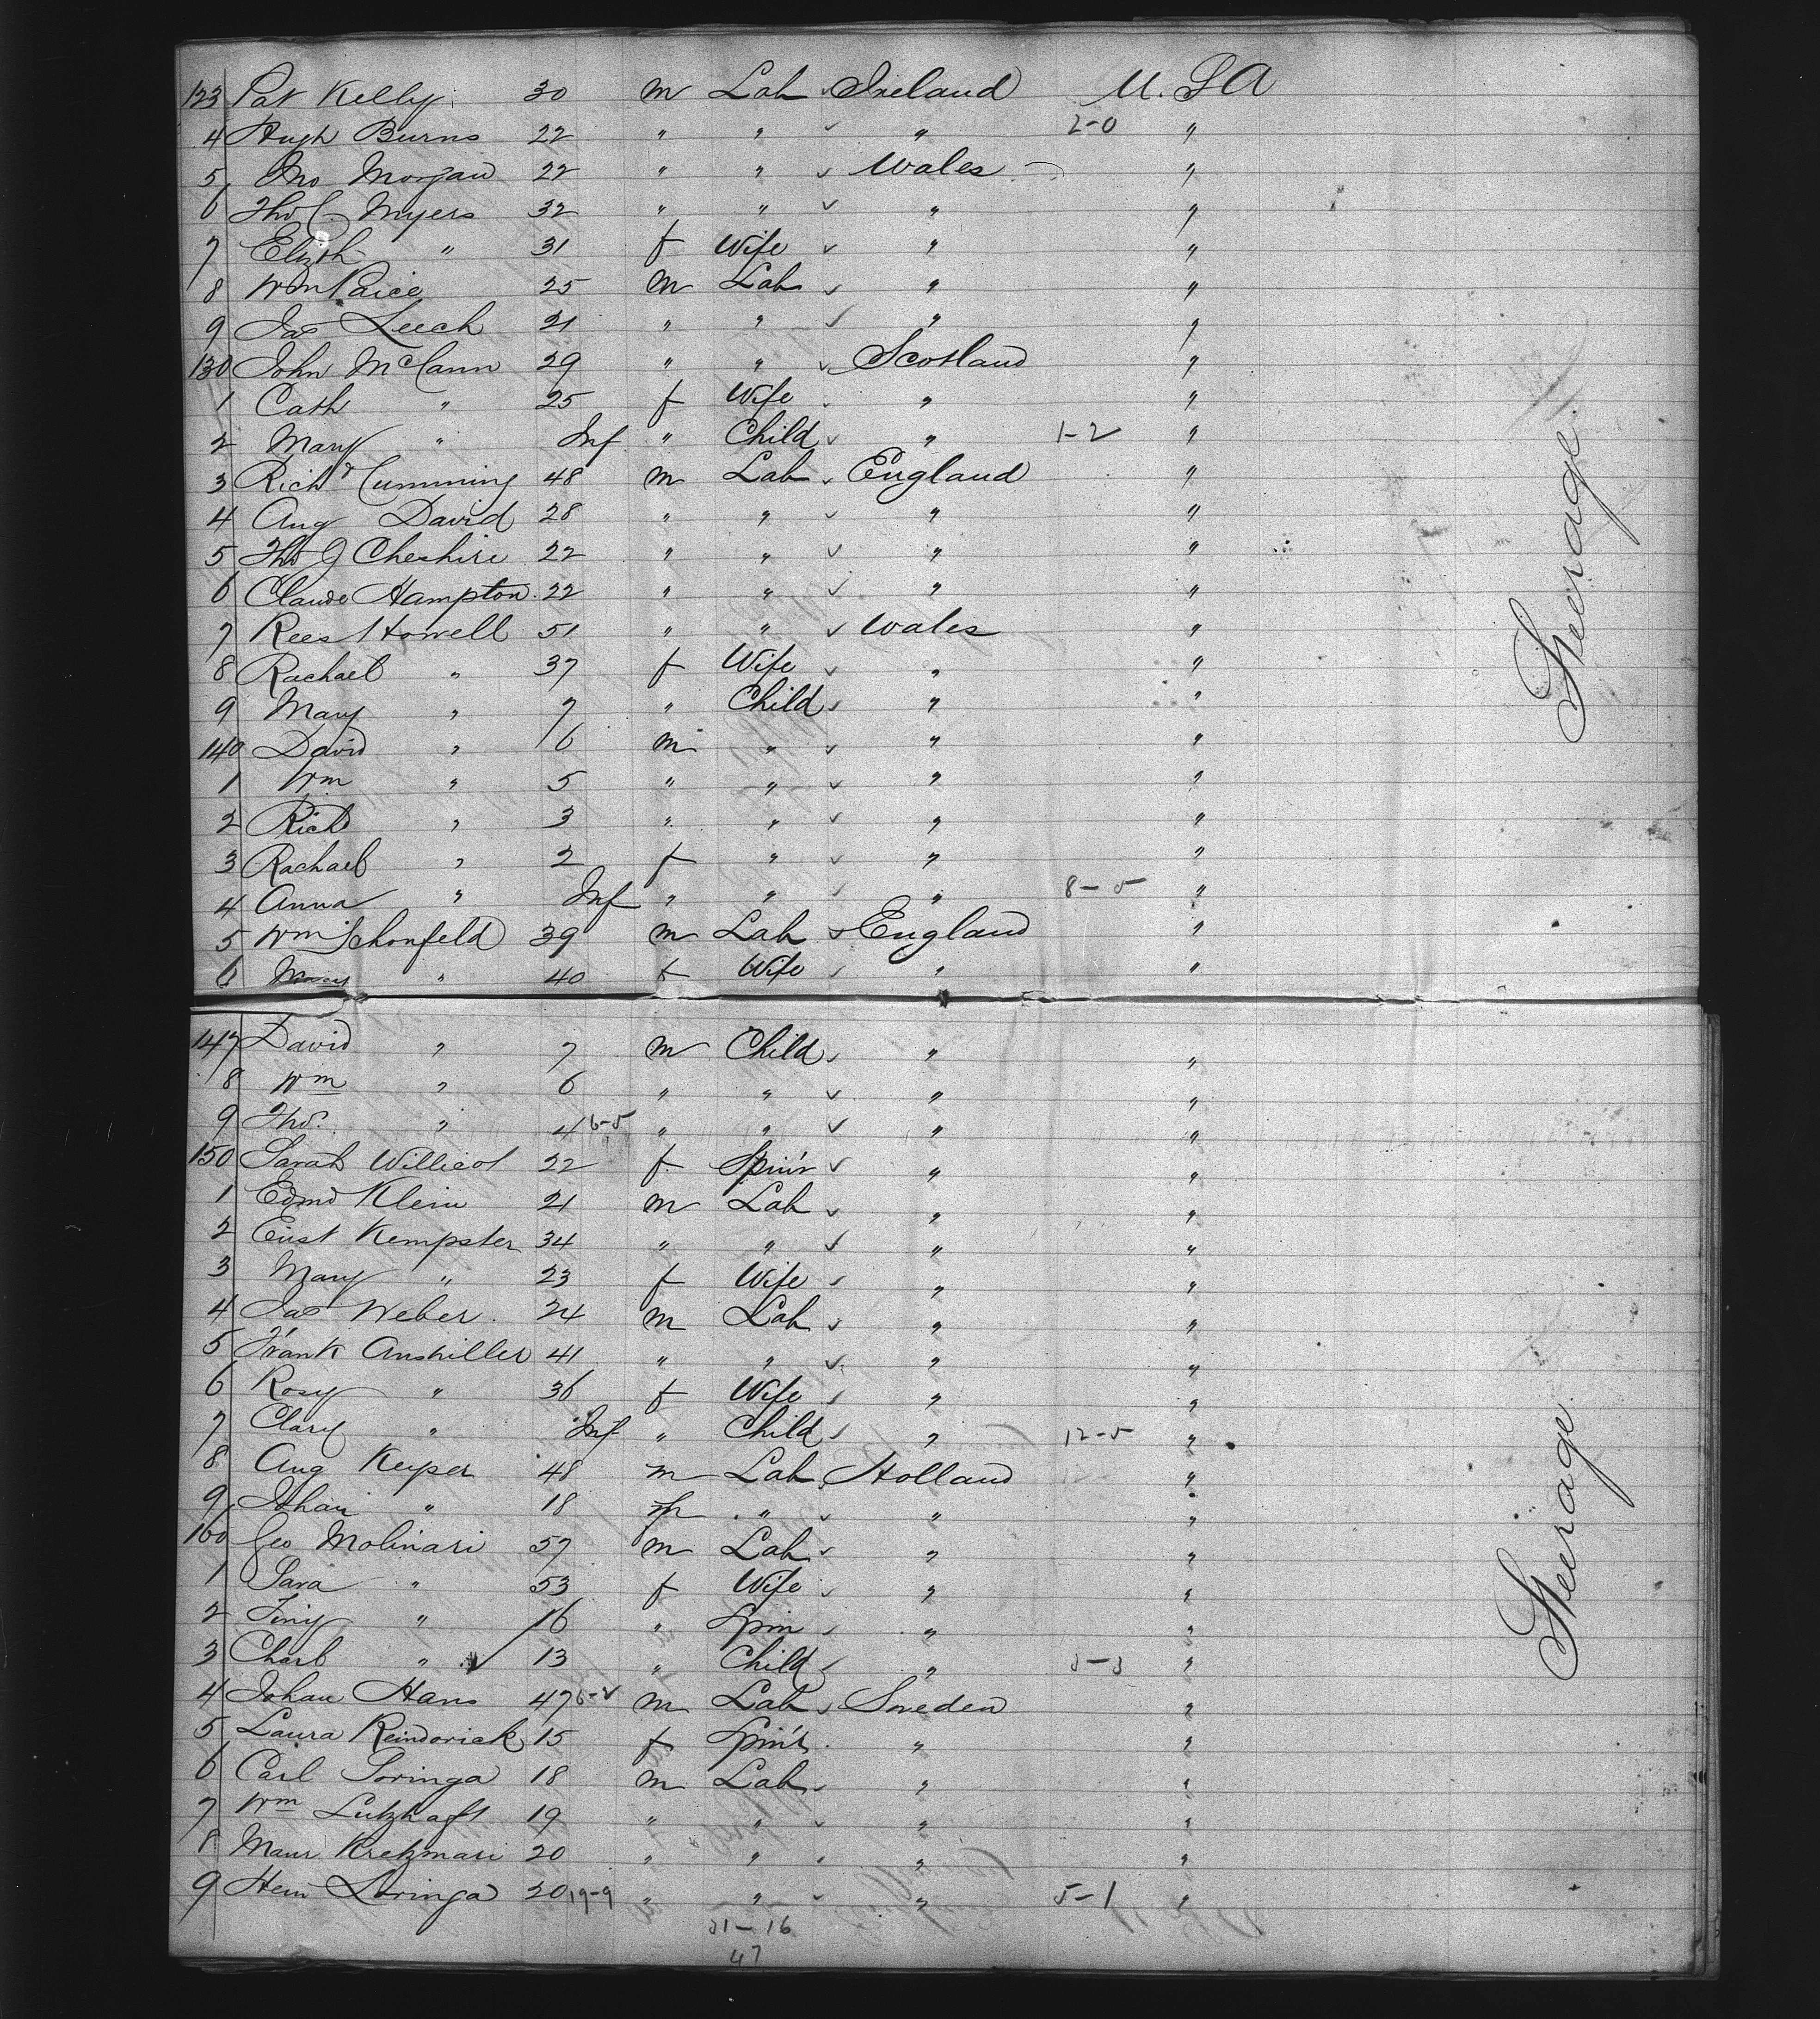 123 Pat Kelly 30 m Lab Ireland U.S.A
4 Hugh Burns 22 " " " 2-0 "
5 Jno Morgan 22 " " Wales "
6 Thos C Myers 32 " " " "
7 Elizth " 31 f Wife " "
8 Wm Paice 25 m Lab " "
9 Jas Leech 21 " " " "
130 John McCann 29 " " Scotland "
1 Cath " 25 f Wife " "
2 Mary " Inf " Child " 1-2 "
3 Richd Cumming 48 m Lab England "
4 Aug David 28 " " " "
5 Thos J Cheshire 22 " " " "
6 Claude Hampton 22 " " " "
7 Rees Howell 51 " " Wales "
8 Rachael " 37 f Wife " "
9 Mary " 7 " Child " "
140 David " 6 m " " "
1 Wm " 5 " " " "
2 Richd " 3 " " " "
3 Rachael " 2 f " " "
4 Anna " Inf " " " 8-5 "
5 Wm Schonfeld 39 m Lab England "
6 Mary " 40 f Wife " "
Steerage
147 David " 7 m Child " "
8 Wm " 6 " " " "
9 Thos. " 4 6-5 " " " "
150 Sarah Willicot 22 f Spin'r " "
1 Edmd Klein 21 m Lab " "
2 Eust Kempster 34 " " " "
3 Mary " 23 f Wife " "
4 Jas Weber 24 m Lab " "
5 Frank Anshiller 41 " " " "
6 Rosy " 36 f Wife " "
7 Clary " Inf " Child " 12-5 "
8 Aug Keyper 48 m Lab Holland "
9 Johan " 18 m " " "
160 Geo Molinari 57 m Lab " "
1 Sara " 53 f Wife " "
2 Tiny " 16 " Spin " "
3 Charl " 13 " Child " 3-3 "
4 Johan Hans 47 6-2 m Lab Sweden "
5 Laura Reindorick 15 f Spin'r " "
6 Carl Soringa 18 m Lab " "
7 Wm Lutzhaft 19 " " " "
8 Maur Kretzmari 20 " " " "
9 Hein Loringa 20 19-9 " " " 5-1 "
31-16
47
Steerage